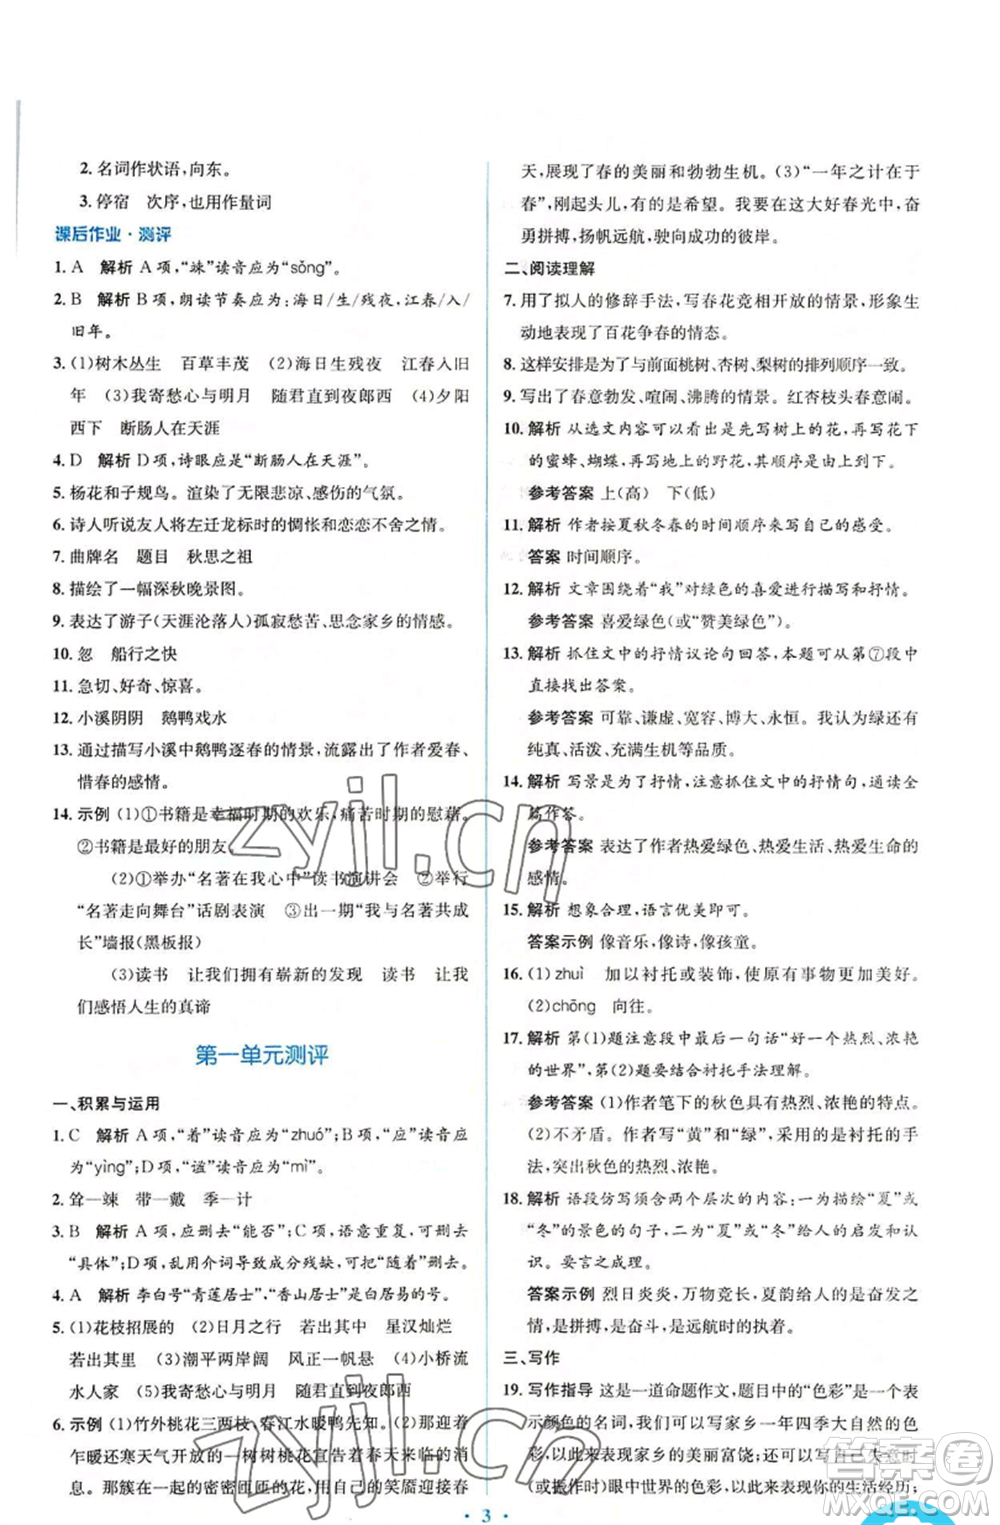 2. 名词作状语，向东。
3. 停宿　次序，也用作量词
课后作业·测评
1. A　解析　A 项，“竦”读音应为“sǒng”。
2. B　解析　B 项，朗读节奏应为：海日/生/残夜，江春/入/
旧年。
3. (1)树木丛生　百草丰茂　(2)海日生残夜　江春入旧
年　(3)我寄愁心与明月　随君直到夜郎西　(4)夕阳
西下　断肠人在天涯
4. D　解析　D 项，诗眼应是“断肠人在天涯”。
5. 杨花和子规鸟。渲染了无限悲凉、感伤的气氛。
6. 诗人听说友人将左迁龙标时的惆怅和恋恋不舍之情。
7. 曲牌名　题目　秋思之祖
8. 描绘了一幅深秋晚景图。
9. 表达了游子(天涯沦落人)孤寂愁苦、思念家乡的感情。
10. 忽　船行之快
11. 急切、好奇、惊喜。
12. 小溪阴阴　鹅鸭戏水
13. 通过描写小溪中鹅鸭逐春的情景，流露出了作者爱春、
惜春的感情。
14. 示例　(1)①书籍是幸福时期的欢乐，痛苦时期的慰藉。
②书籍是最好的朋友。
(2)①举办“名著在我心中”读书演讲会　②举行
“名著走向舞台”话剧表演　③出一期“我与名著共成
长”墙报(黑板报)
(3)读书　让我们拥有崭新的发现　读书　让我
们感悟人生的真谛
第一单元测评
一、积累与运用
1. C　解析　A 项，“着”读音应为“zhuó”；B 项，“应”读音应
为“yìng”；D 项，“谧”读音应为“mì”。
2. 耸—竦　带—戴　季—计
3. B　解析　A 项，应删去“能否”；C 项，语意重复，可删去
“具体”；D 项，乱用介词导致成分残缺，应删去“随着”。
4. A　解析　李白号“青莲居士”，“香山居士”是白居易的号。
5. (1)花枝招展的　(2)日月之行　若出其中　星汉灿烂
若出其里　(3)潮平两岸阔　风正一帆悬　(4)小桥流
水人家　(5)我寄愁心与明月　随君直到夜郎西
6. 示例　(1)竹外桃花三两枝，春江水暖鸭先知。　(2)迎着
乍暖还寒天气开放的一树树桃花宣告着春天来临的消
息。那簇在一起的密密匝匝的花，多么像一个个的笑靥迎接着春
天，展现了春的美丽和勃勃生机。(3)“一年之计在于
春”，刚起头儿，有的是希望。我要在这大好春光中，奋
勇拼搏，扬帆远航，驶向成功的彼岸。
二、阅读理解
7. 用了拟人的修辞手法，写春花竞相开放的情景，形象生
动地表现了百花争春的情态。
8. 这样安排是为了与前面桃树、杏树、梨树的排列顺序一致。
9. 写出了春意勃发、喧闹、沸腾的情景。红杏枝头春意闹。
10. 解析　从选文内容可以看出是先写树上的花，再写花下
的蜜蜂、蝴蝶，再写遍地的野花，其顺序是从上到下。
参考答案　上(高)　下(低)
11. 解析　作者按夏秋冬春的时间顺序来写自己的感受。
答案　时间顺序。
12. 解析　文章围绕着“我”对绿色的喜爱进行描写和抒情。
参考答案　喜爱绿色(或“赞美绿色”)。
13. 解析　抓住文中的抒情议论句回答，本题可从第⑦段中
直接找出答案。
参考答案　可靠、谦虚、宽容、博大、永恒。我认为绿还有
纯真、活泼、充满生机的特点。
14. 解析　写景是为了抒情，注意抓住文中的抒情句，通读全
篇作答。
参考答案　表达了作者热爱绿色、热爱生活、热爱生命的
感情。
15. 解析　想象合理，语言优美即可。
答案示例　像音乐，像诗，像孩童。
16. (1)zhuì　加以衬托或装饰，使原有事物更加美好。
(2)chōng　向往。
17. 解析　第(1)题注意段中最后一句话“好一个热烈、浓艳
的世界”，第(2)题要结合衬托手法理解。
参考答案　(1)作者笔下的秋色具有热烈、浓艳的特点。
(2)不矛盾。作者写“黄”和“绿”，采用的是衬托的手
法，突出秋色的热烈、浓艳。
18. 解析　语段仿写须含两个层次的内容：一为描写“夏”或
“冬”的景色的句子，二为“夏”或“冬”给人的启发和认
识。要言之成理。
答案示例　烈日炎炎，万物生长。夏韵给人的启示，
是拼搏，是奋斗，是远航时的执着。
三、写作
19. 写作指导　这是一道命题作文，题目中的“色彩”是个表
示颜色的名词，可以写家乡一年四季大自然的颜色的色
彩，以此来表现家乡的美丽富饶；可以写自己失意(或得
意)时眼中世界的色彩，以此来表现自己的生活经历；
3
zyjl.cn
答案圈